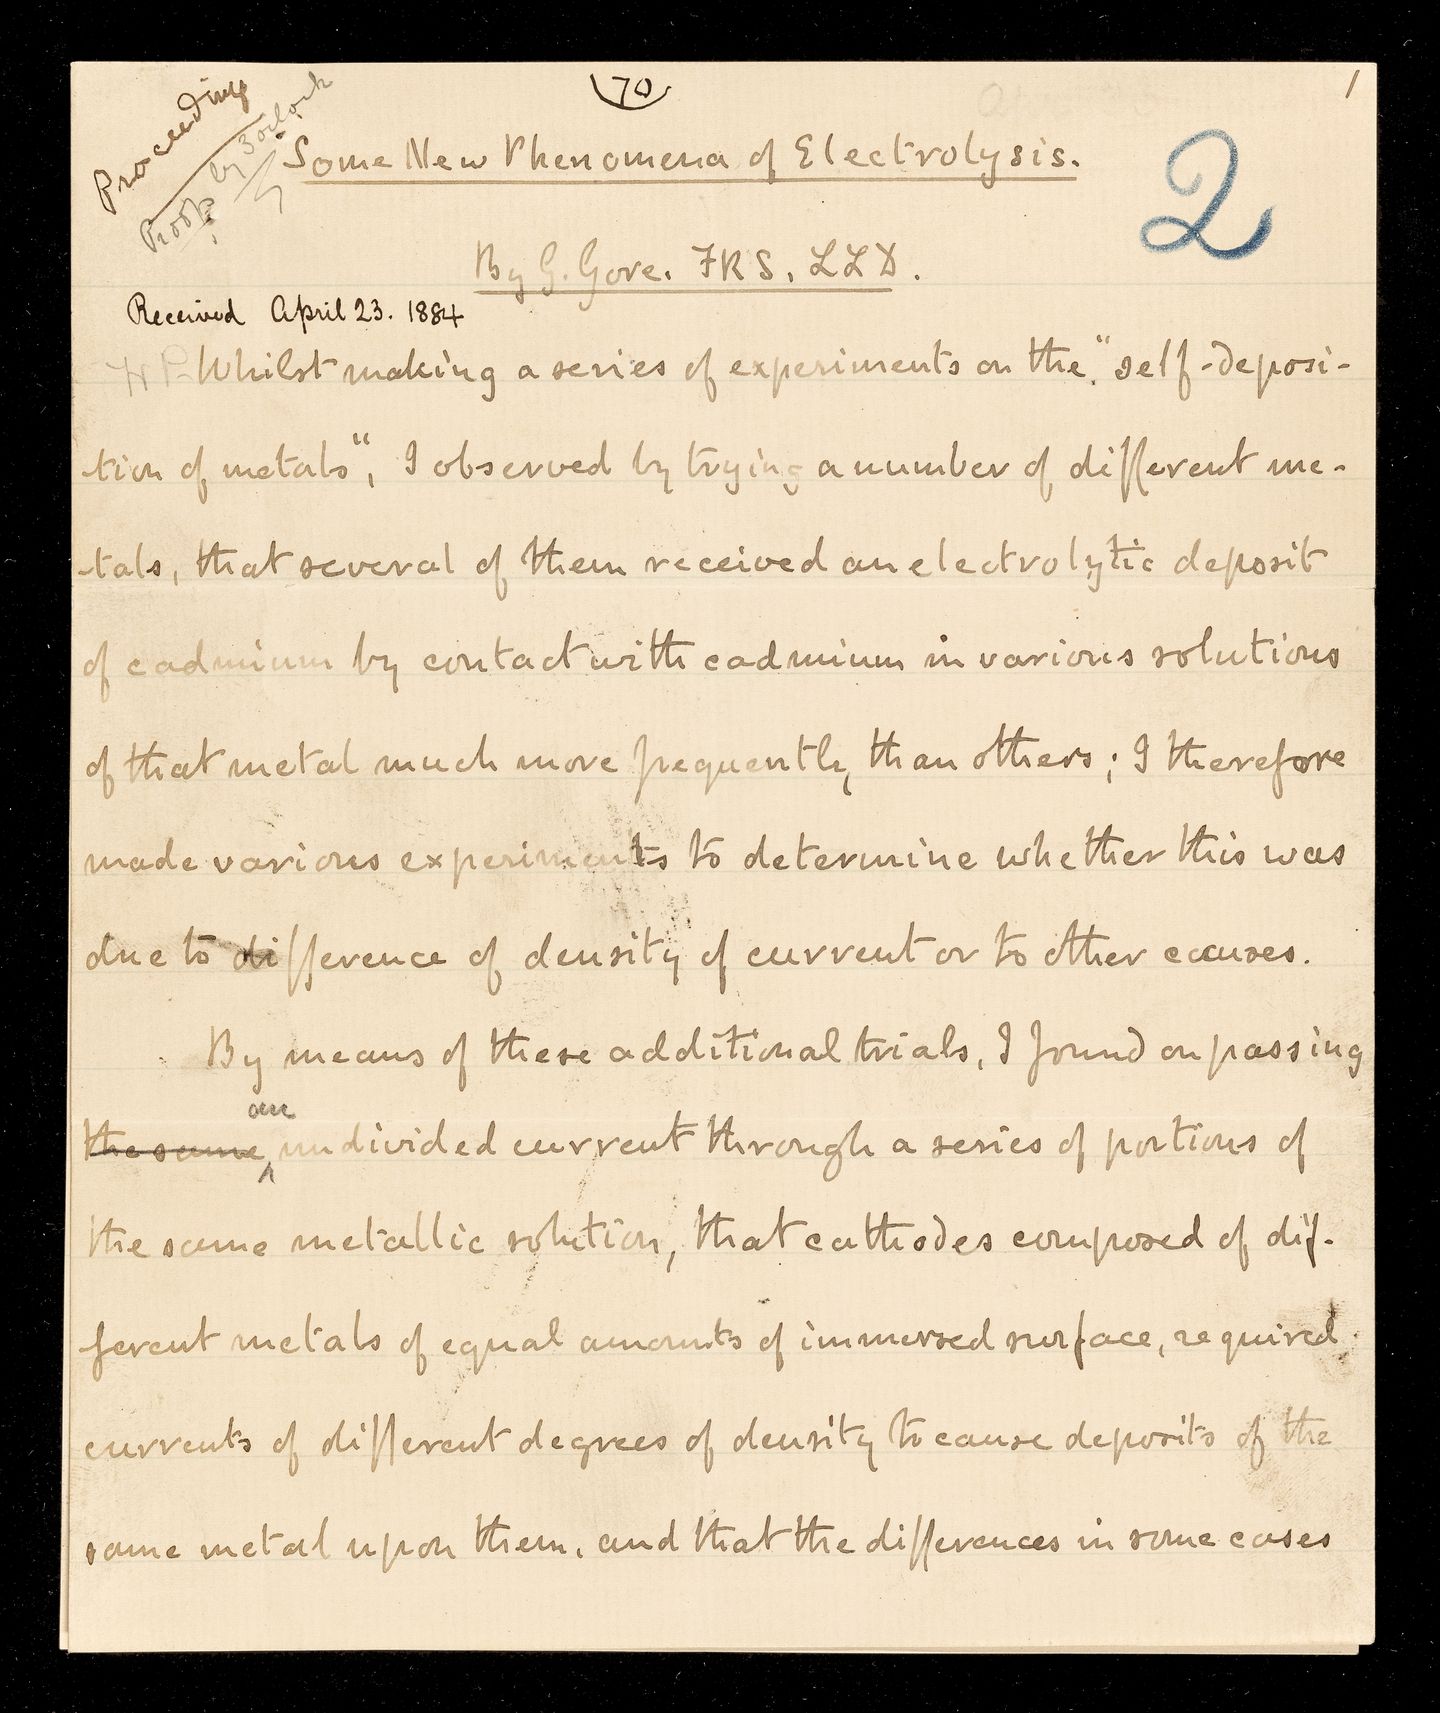 (70)
1
Proceedings
Proofs by 3 oclock
Some New Phenomena of Electrolysis.
2
By G. Gore. FRS, LLD.
Received April 23. 1884
Whilst making a series of experiments on the "self-deposi-
-tion of metals", I observed by trying a number of different me-
-tals, that several of them received an electrolytic deposit
of cadmium by contact with cadmium in various solutions
of that metal much more frequently than others; I therefore
made various experiments to determine whether this was
due to difference of density of current or to other causes.
By means of these additional trials, I found on passing
an
the same undivided current through a series of portions of
the same metallic solution, that cathodes composed of dif-
ferent metals of equal amounts of immersed surface, required
currents of different degrees of density to cause deposits of the
same metal upon them, and that the differences in some cases